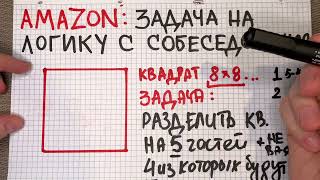 AMAZON: ЗАДАЧА НА
ЛОГИКУ С СОБЕСЕДО
КВАДРАТ 8×8...
ЗАДАЧА: 2
РАЗДЕЛИТЬ КВ.
НА 5 ГОСТЕЙ + НЕ
4 ИЗ КОТОРЫХ БУДУТ